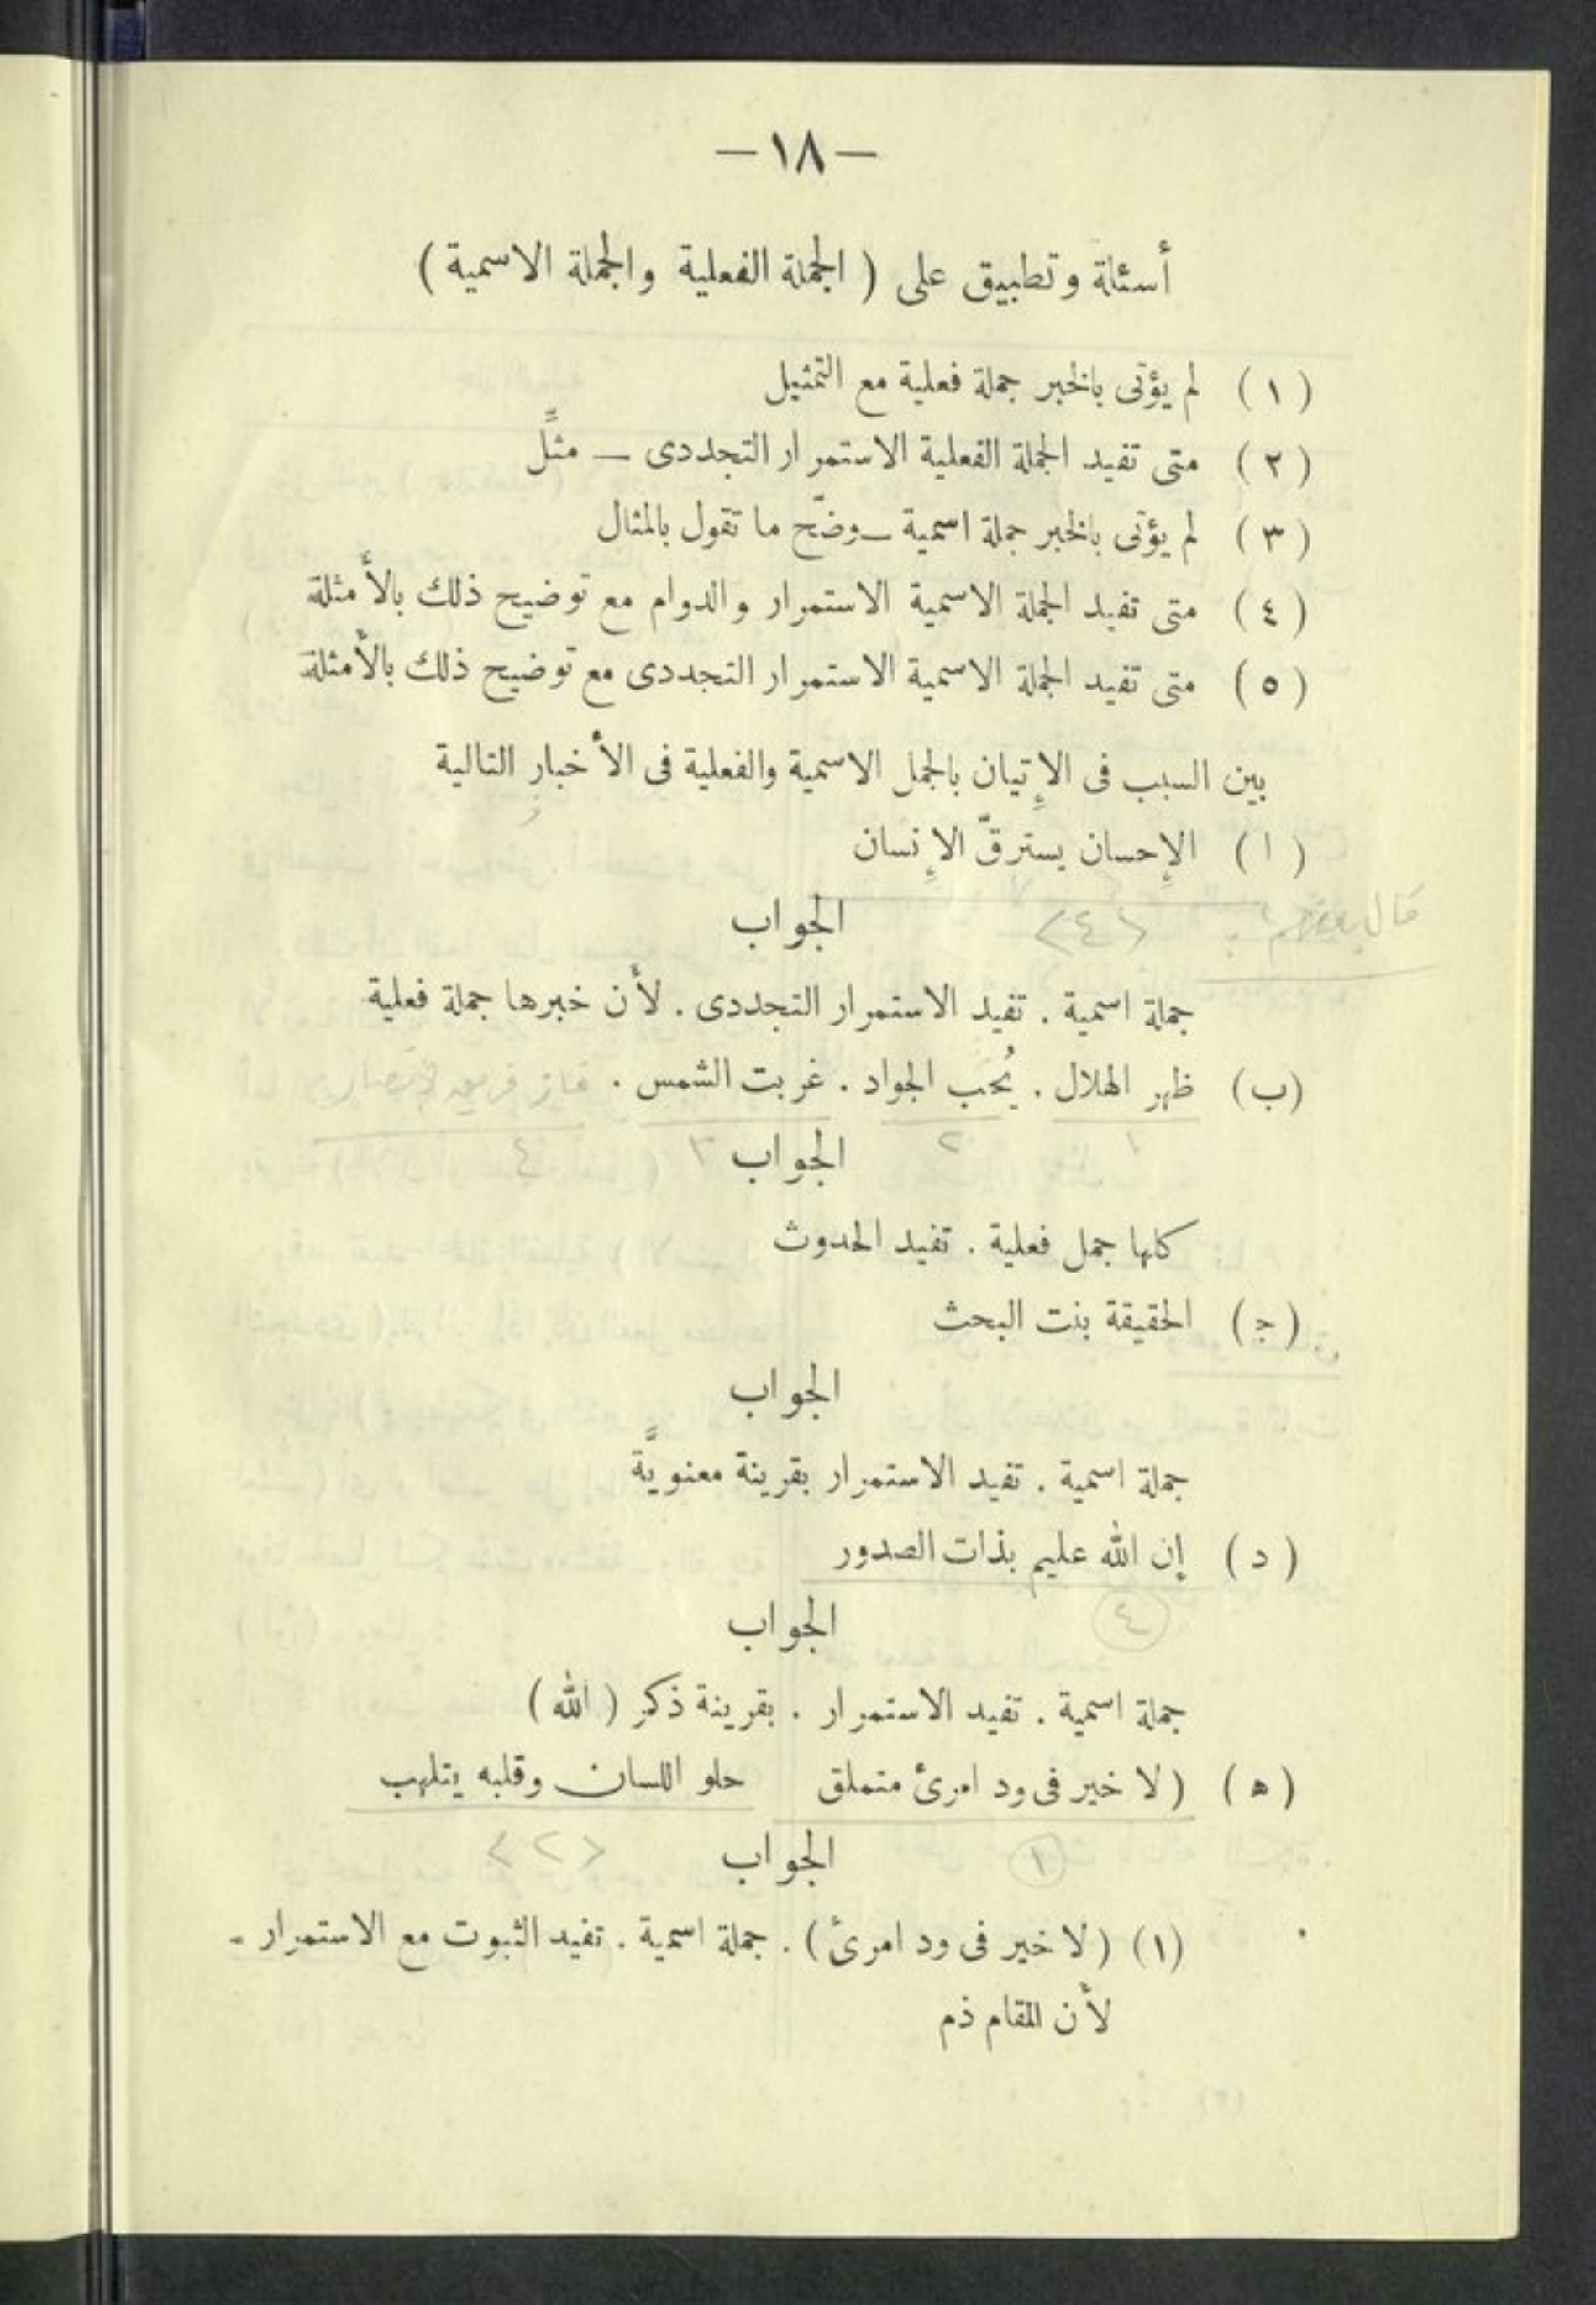 — ١٨ —
أسئلة وتطبيق على ( الجملة الفعلية والجملة الاسمية )
( ١ ) لم يؤتى بالخبر جملة فعلية مع التمثيل
( ٢ ) متى تفيد الجملة الفعلية الاستمرار التجددى — مثِّل
( ٣ ) لم يؤتى بالخبر جملة اسمية — وضّح ما تقول بالمثال
( ٤ ) متى تفيد الجملة الاسمية الاستمرار والدوام مع توضيح ذلك بالأمثلة
( ٥ ) متى تفيد الجملة الاسمية الاستمرار التجددى مع توضيح ذلك بالأمثلة
بين السبب فى الإتيان بالجمل الاسمية والفعلية فى الأخبار التالية
( ا ) الإحسان يسترقّ الإنسان
قال <٤>
الجواب
جملة اسمية . تفيد الاستمرار التجددى . لأن خبرها جملة فعلية
(ب) ظهر الهلال . يُحب الجواد . غربت الشمس . فاز فريق
١ ٢ ٣ ٤
الجواب
كلها جمل فعلية . تفيد الحدوث
( ج ) الحقيقة بنت البحث
الجواب
جملة اسمية . تفيد الاستمرار بقرينة معنويَّة
( د ) إن الله عليم بذات الصدور
٤
الجواب
جملة اسمية . تفيد الاستمرار . بقرينة ذكر ( الله )
( ه ) ( لا خير فى ود امرئ متملق حلو اللسان وقلبه يتلهب
١ <٢>
الجواب
(١) ( لا خير فى ود امرئ ) . جملة اسمية . تفيد الثبوت مع الاستمرار .
لأن المقام ذم